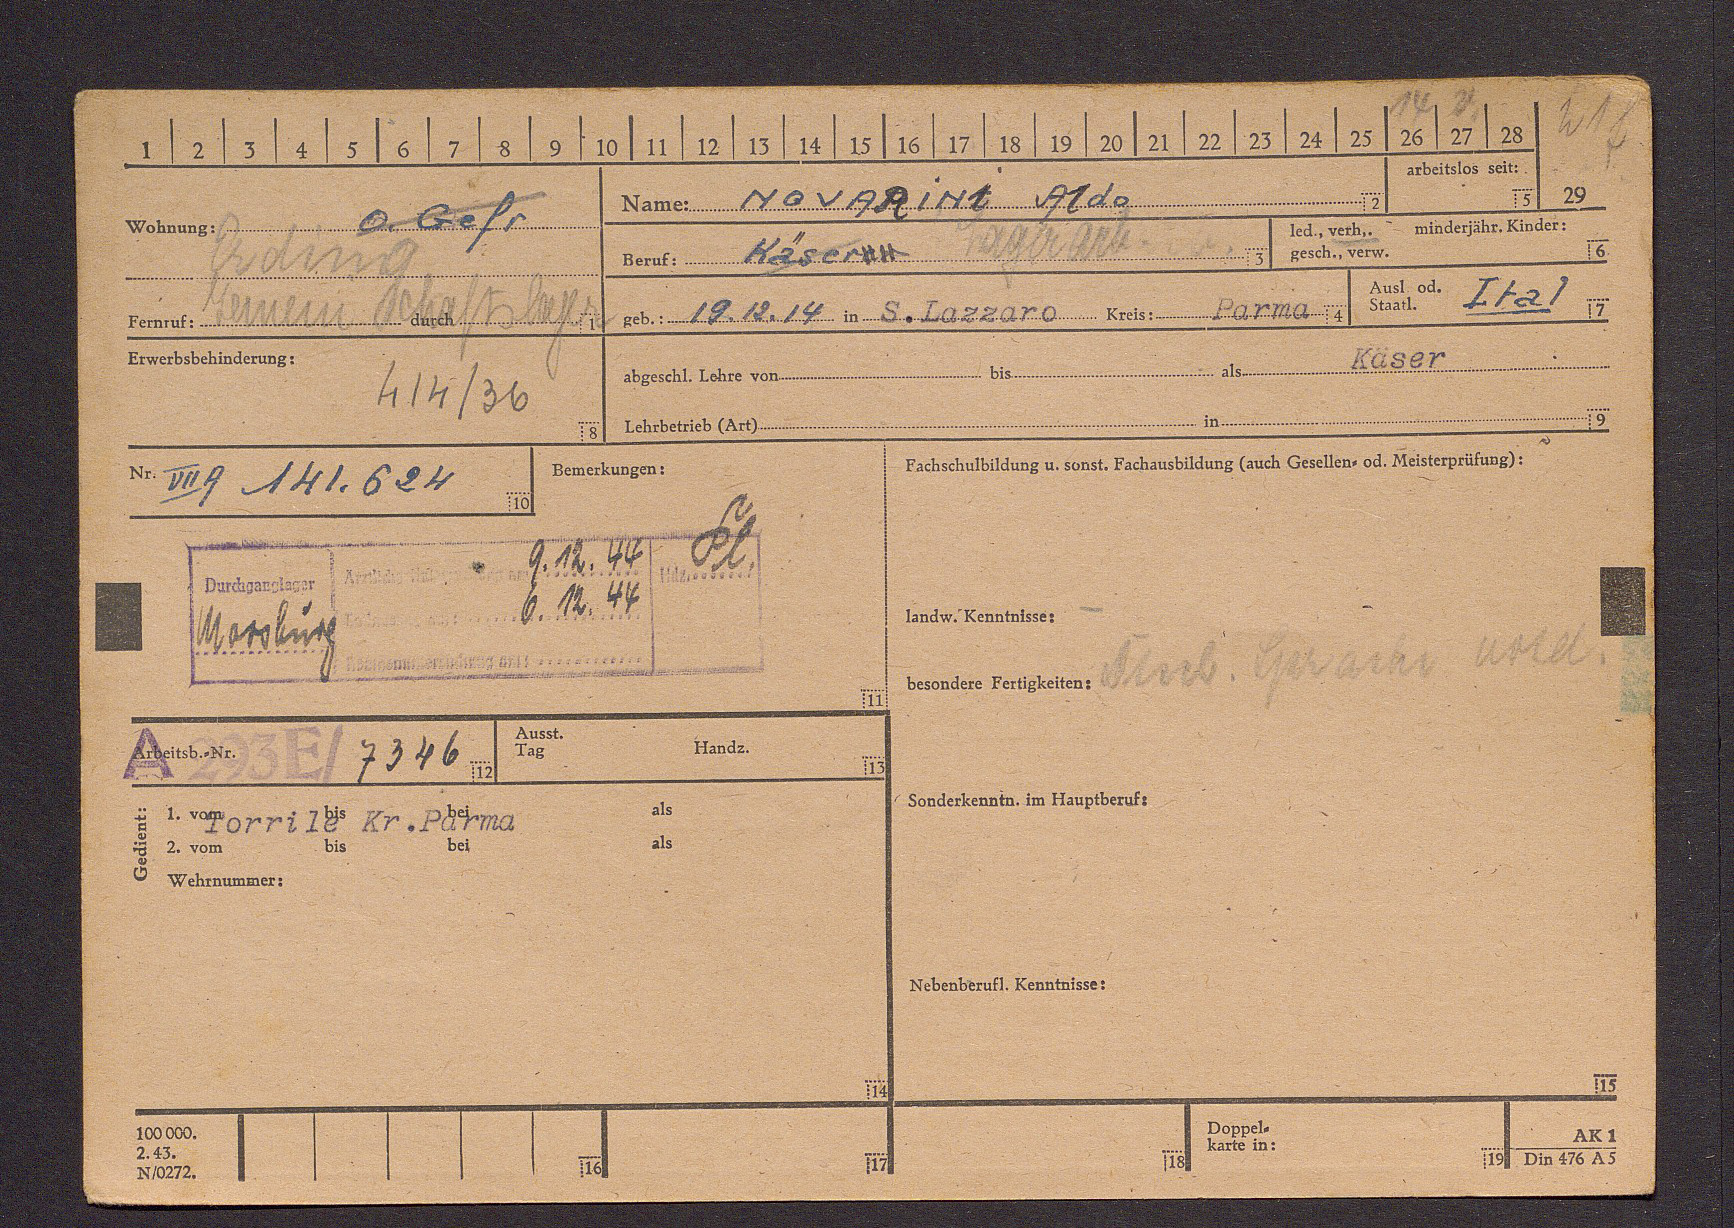 14
1 2 3 4 5 6 7 8 9 10 11 12 13 14 15 16 17 18 19 20 21 22 23 24 25 26 27 28
arbeitslos seit:
5 29
Wohnung: O. Gefr
Erding
Gemeinschaftslager
Fernruf: durch 1
Name: NOVARINI Aldo 2
Beruf: Käser Lagerarb. 3
led., verh., minderjähr. Kinder:
gesch., verw. 6
geb.: 19.12.14 in S. Lazzaro Kreis: Parma 4
Ausl od. Staatl. Ital 7
Erwerbsbehinderung:
414/36
8
abgeschl. Lehre von bis als Käser
Lehrbetrieb (Art) in 9
Nr. VII 9 141.624
10
Bemerkungen:
Durchganglager
Moosburg
9.12.44
6.12.44
Hdz.
11
Fachschulbildung u. sonst. Fachausbildung (auch Gesellen- od. Meisterprüfung):
landw. Kenntnisse: –
besondere Fertigkeiten:
A Arbeitsb.-Nr. 293E/ 7346 12
Ausst. Tag Handz.
13
Sonderkenntn. im Hauptberuf:
Gedient:
1. vom bis bei als
Torrile Kr.Parma
2. vom bis bei als
Wehrnummer:
14
Nebenberufl. Kenntnisse:
15
100 000.
2. 43.
N/0272.
16 17 18
Doppel-
karte in:
19
AK 1
Din 476 A5